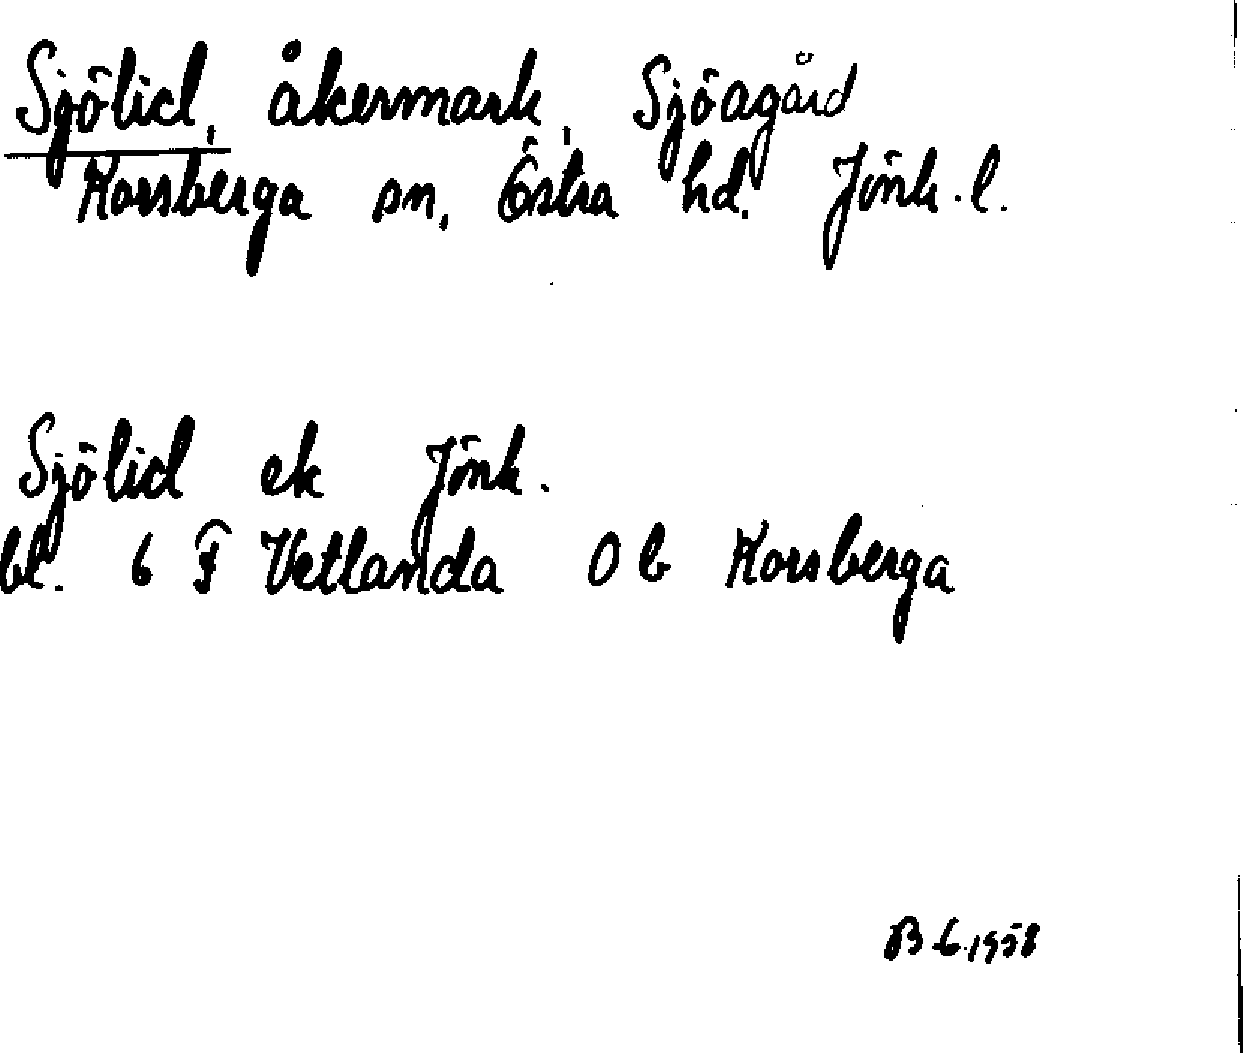 Sjölid, åkermark, Sjöagård
Korsberga sn, Östra hd. Jönk. l.
Sjölid ek Jönk.
bl. 6 F Vetlanda 0 b Korsberga
B G 1958